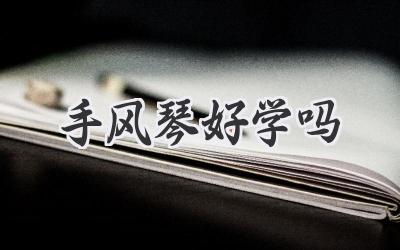 手风琴好学吗